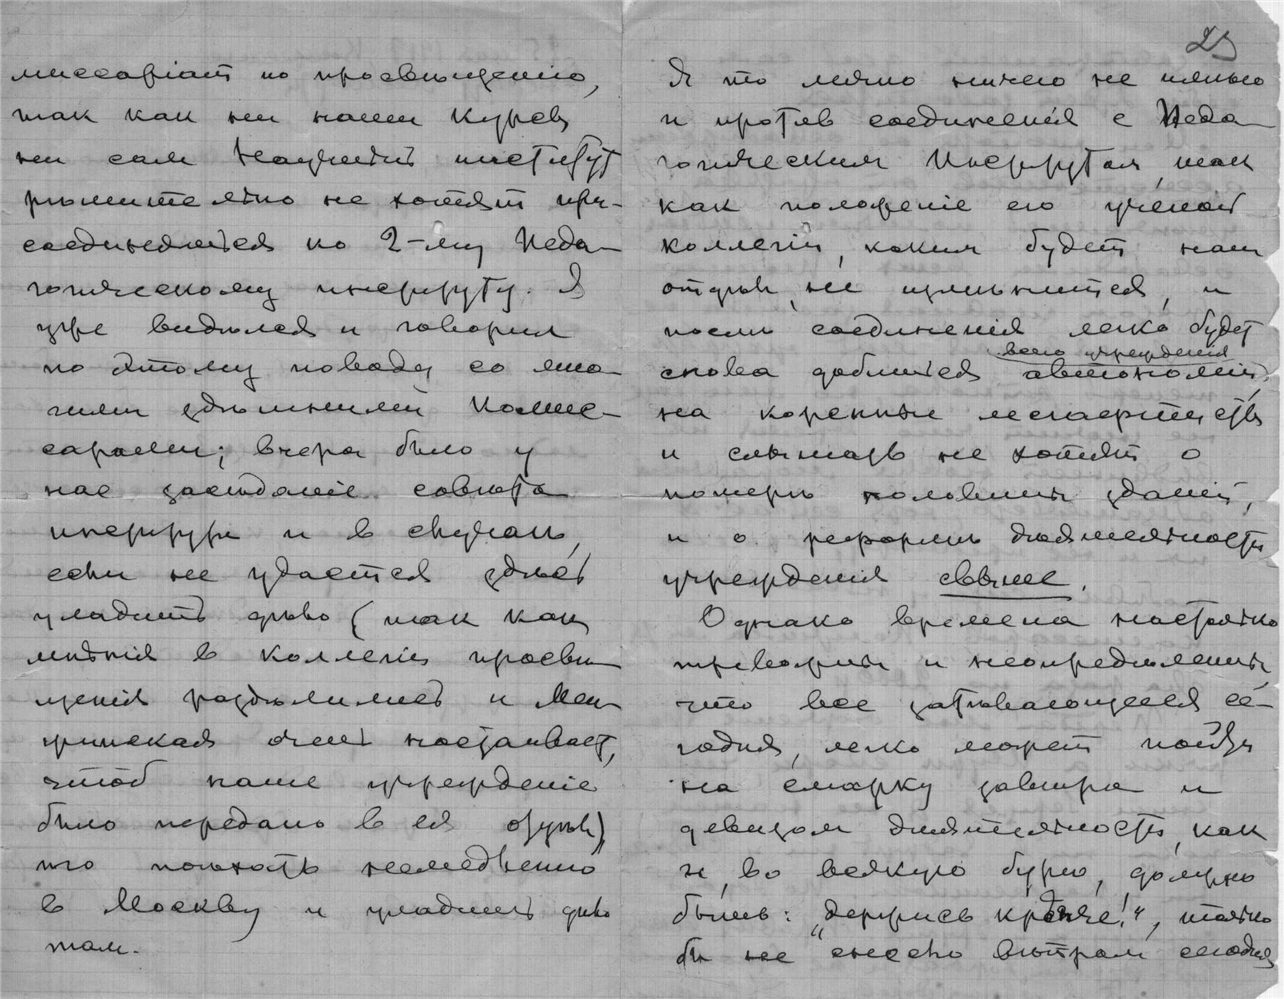 миссаріат по просвѣщенію,
так как ни наши Курсы,
ни сам Научный институт
рѣшительно не хотят при-
соединяться ко 2-му Педа-
гогическому институту. Я
уже видѣлся и говорил
по этому поводу со мно-
гими здѣшними Комис-
сарами; вчера было у
нас засѣданіе совѣта
института и в случаѣ,
если не удается здѣсь
уладить дѣло (так как
мнѣнія в коллегіи просвѣ-
щенія раздѣлились и Мен-
жинская очень настаивает,
чтоб наше учрежденіе
было передано в ея отдѣл),
то поѣхать немедленно
в Москву и уладить дѣло
там.
23
Я то лично ничего не имѣю
и против соединенія с Педа-
гогическим Институтом, так
как положеніе его ученой
коллегіи, каким будет наш
отдѣл, не измѣнится, и
послѣ соединенія легко будет
всего учрежденія
снова добиться автономіи,
но коренные
и слышать не хотят о
потерѣ половины зданій,
и о реформѣ дѣятельности
учрежденія свыше.
Однако времена настолько
тревожны и неопредѣленны,
что все затѣвающееся се-
годня, легко может пойти
на смарку завтра и
девизом дѣятельности, как
и во всякую бурю, должно
быть: „держись крѣпче!", только
бы не снесло вѣтром сегодня